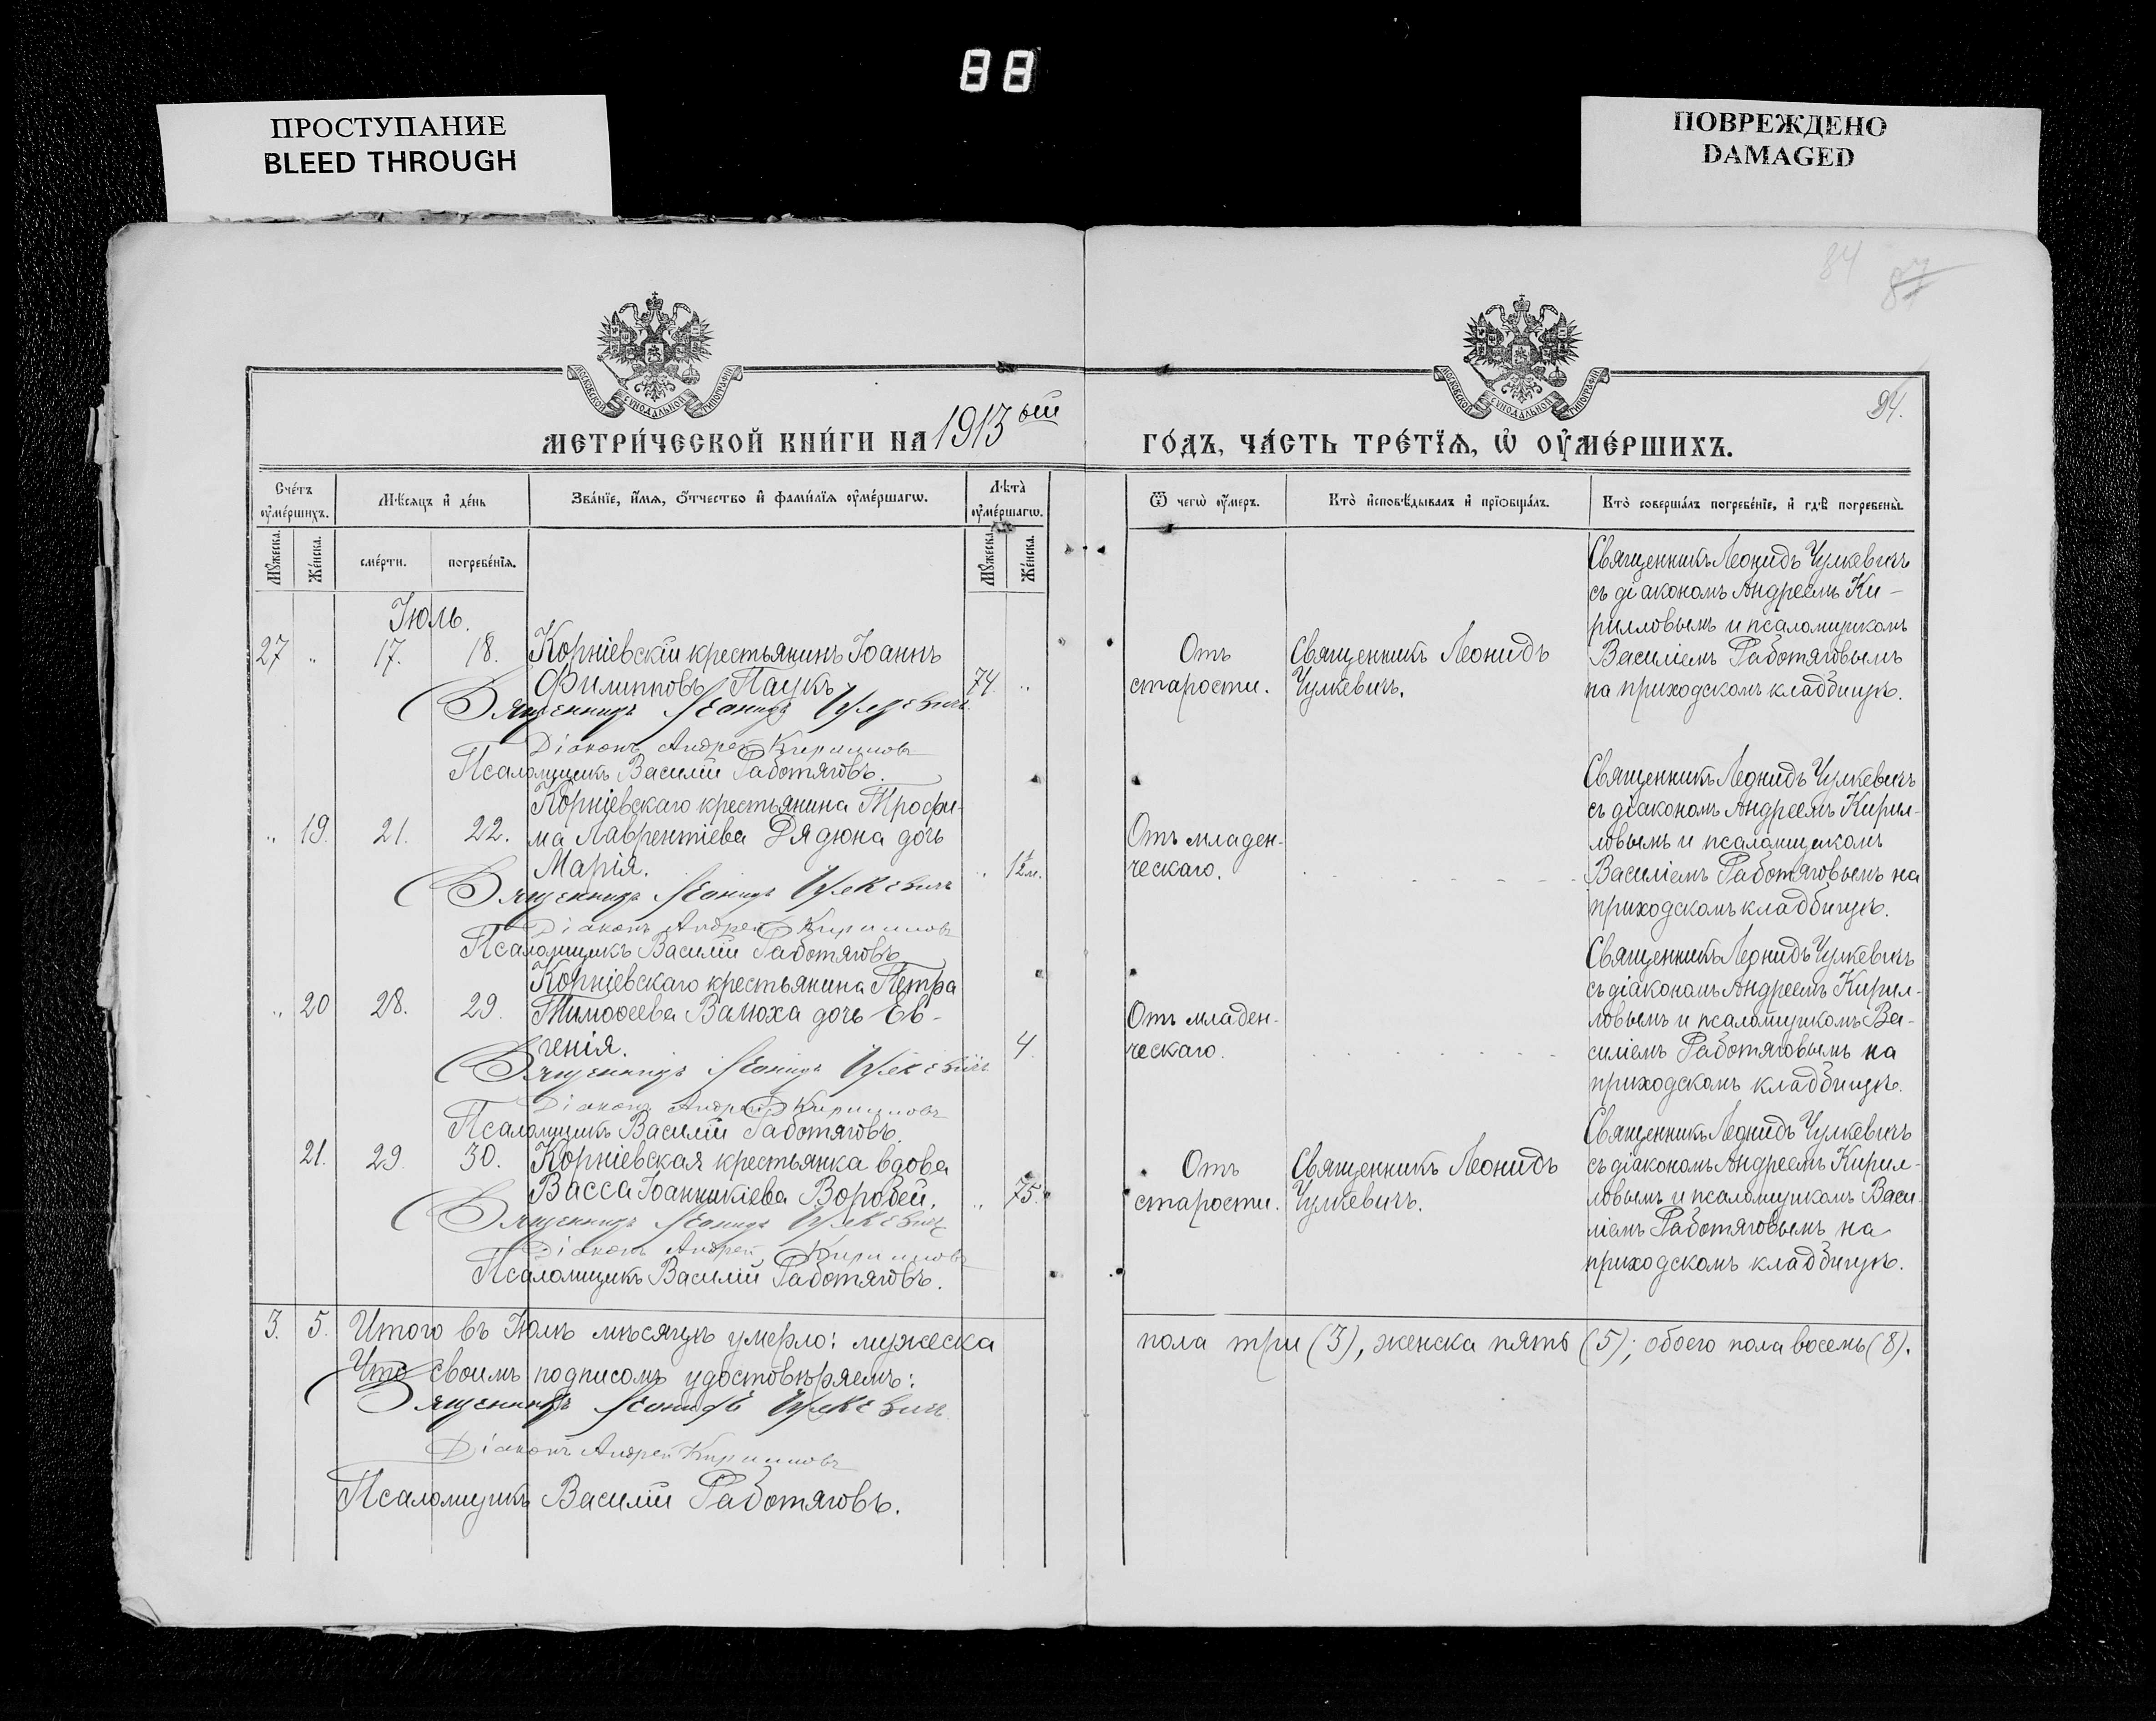 88
ПРОСТУПАНИЕ
BLEED THROUGH
ПОВРЕЖДЕНО
DAMAGED
84 87
МОСКОВСКОЙ СѴНОДАЛЬНОЙ ТИПОГРАФІИ
МОСКОВСКОЙ СѴНОДАЛЬНОЙ ТИПОГРАФІИ
94.
МЕТРИ́ЧЕСКОЙ КНИ́ГИ НА 1913 ый
ГО́ДЪ, ЧА́СТЬ ТРЕ́ТЇѦ, Ѡ҆ ОУ҆МЕ́РШИХЪ.
Сче́тъ оу҆ме́ршихъ.
Мѣ́сяцъ и҆ де́нь
Зва́нїе, и҆́мѧ, ѻ҆́тчество и҆ фами́лїѧ оу҆ме́ршагѡ.
Лѣта̀ оу҆ме́ршагѡ.
Ѿ чегѡ̀ оу҆́меръ.
Кто̀ и҆сповѣ́дывалъ и҆ прїѡбща́лъ.
Кто̀ соверша́лъ погребе́нїе, и҆ гдѣ̀ погребены̀.
Мꙋ́жеска.
Же́нска.
сме́рти.
погребе́нїѧ.
Мꙋ́жеска.
Же́нска.
Іюль.
27 „ 17. 18. Корніевскій крестьянинъ Іоаннъ
Филипповъ Паукъ 74. „
Священникъ Леонидъ Чулкевичъ
Діаконъ Андрей Кирилловъ
Псаломщикъ Василій Работяговъ.
Отъ
старости.
Священникъ Леонидъ
Чулкевичъ.
Священникъ Леонидъ Чулкевичъ
съ діакономъ Андреемъ Ки-
рилловымъ и псаломщикомъ
Василіемъ Работяговымъ
на приходскомъ кладбищѣ.
Корніевскаго крестьянина Трофи-
„ 19. 21. 22. ма Лаврентіева Дядюна дочь
Марія. „ 1½ м.
Священникъ Леонидъ Чулкевичъ
Діаконъ Андрей Кирилловъ
Псаломщикъ Василій Работяговъ
Отъ младен-
ческаго.
Священникъ Леонидъ Чулкевичъ
съ діакономъ Андреемъ Кирил-
ловымъ и псаломщикомъ
Василіемъ Работяговымъ на
приходскомъ кладбищѣ.
Корніевскаго крестьянина Петра
„ 20 28. 29. Тимоѳеева Валюха дочь Ев-
генія. 4.
Священникъ Леонидъ Чулкевичъ
Діаконъ Андрей Кирилловъ
Псаломщикъ Василій Работяговъ.
Отъ младен-
ческаго.
Священникъ Леонидъ Чулкевичъ
съ діакономъ Андреемъ Кирил-
ловымъ и псаломщикомъ Ва-
силіемъ Работяговымъ на
приходскомъ кладбищѣ.
21. 29. 30. Корніевская крестьянка вдова
Васса Іоанникіева Воробей. „ 75.
Священникъ Леонидъ Чулкевичъ
Діаконъ Андрей Кирилловъ
Псаломщикъ Василій Работяговъ.
Отъ
старости.
Священникъ Леонидъ
Чулкевичъ.
Священникъ Леонидъ Чулкевичъ
съ діакономъ Андреемъ Кирил-
ловымъ и псаломщикомъ Васи-
ліемъ Работяговымъ на
приходскомъ кладбищѣ.
3. 5. Итого въ Іюлѣ мѣсяцѣ умерло: мужеска
пола три (3), женска пять (5); обоего пола восемь (8).
Что своимъ подписомъ удостовѣряемъ:
Священникъ Леонидъ Чулкевичъ
Діаконъ Андрей Кирилловъ
Псаломщикъ Василій Работяговъ.